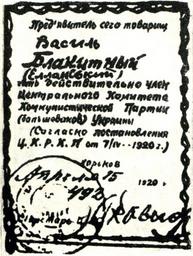 Пред'явитель сего товарищ
Василь
Блакитный
(Елланский)
есть действительно член
Центрального Комитета
Коммунистической Партии
(большевиков) Украины
(Согласно постановления
Ц.К.Р.К.П от 7/IV-1920г.)
Харьков
Апреля 15 1920 г.